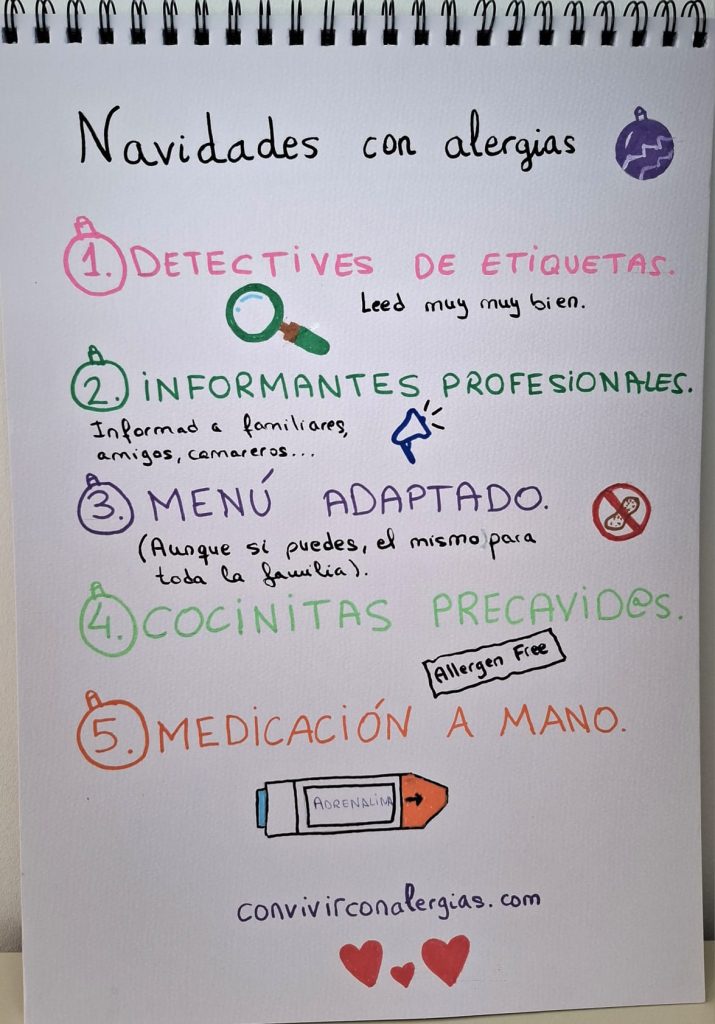 Navidades con alergias
1. DETECTIVES DE ETIQUETAS.
Leed muy muy bien.
2. INFORMANTES PROFESIONALES.
Informad a familiares,
amigos, camareros...
3. MENÚ ADAPTADO.
(Aunque si puedes, el mismo para
toda la familia).
4. COCINITAS PRECAVID@S.
Allergen Free
5. MEDICACIÓN A MANO.
ADRENALINA
convivirconalergias.com